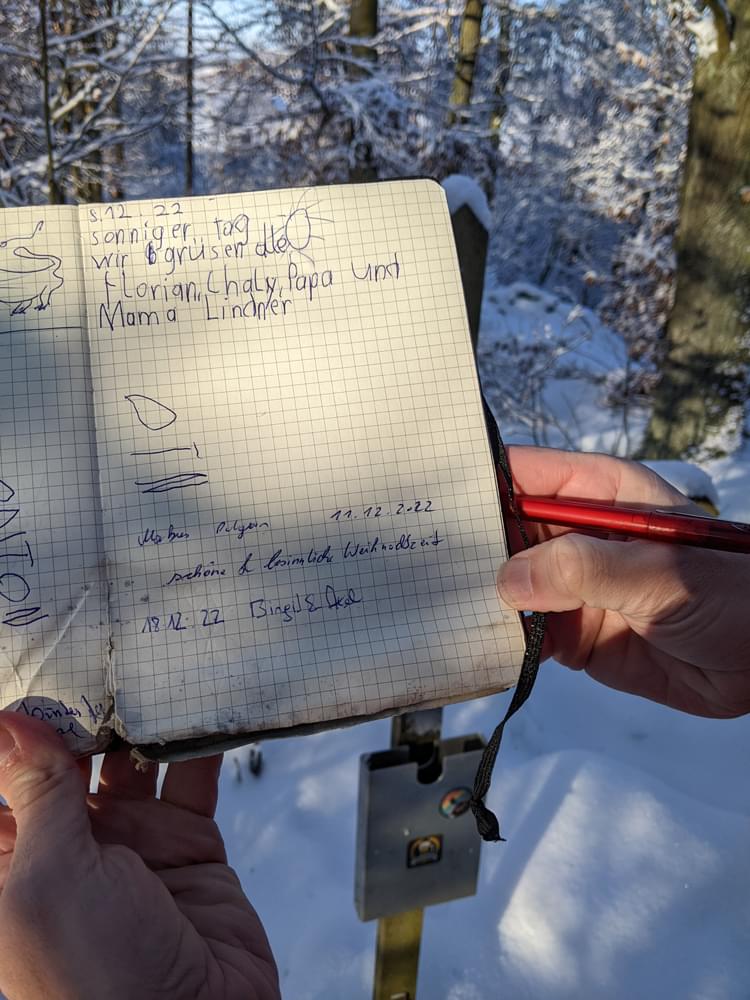 8.12 22
sonniger tag
wir grüsen alle
Florian, Chaly, Papa und
Mama Lindner
11.12.2022
schöne & besinnliche Weihnachtszeit
18.12.22 Birgit & Axel